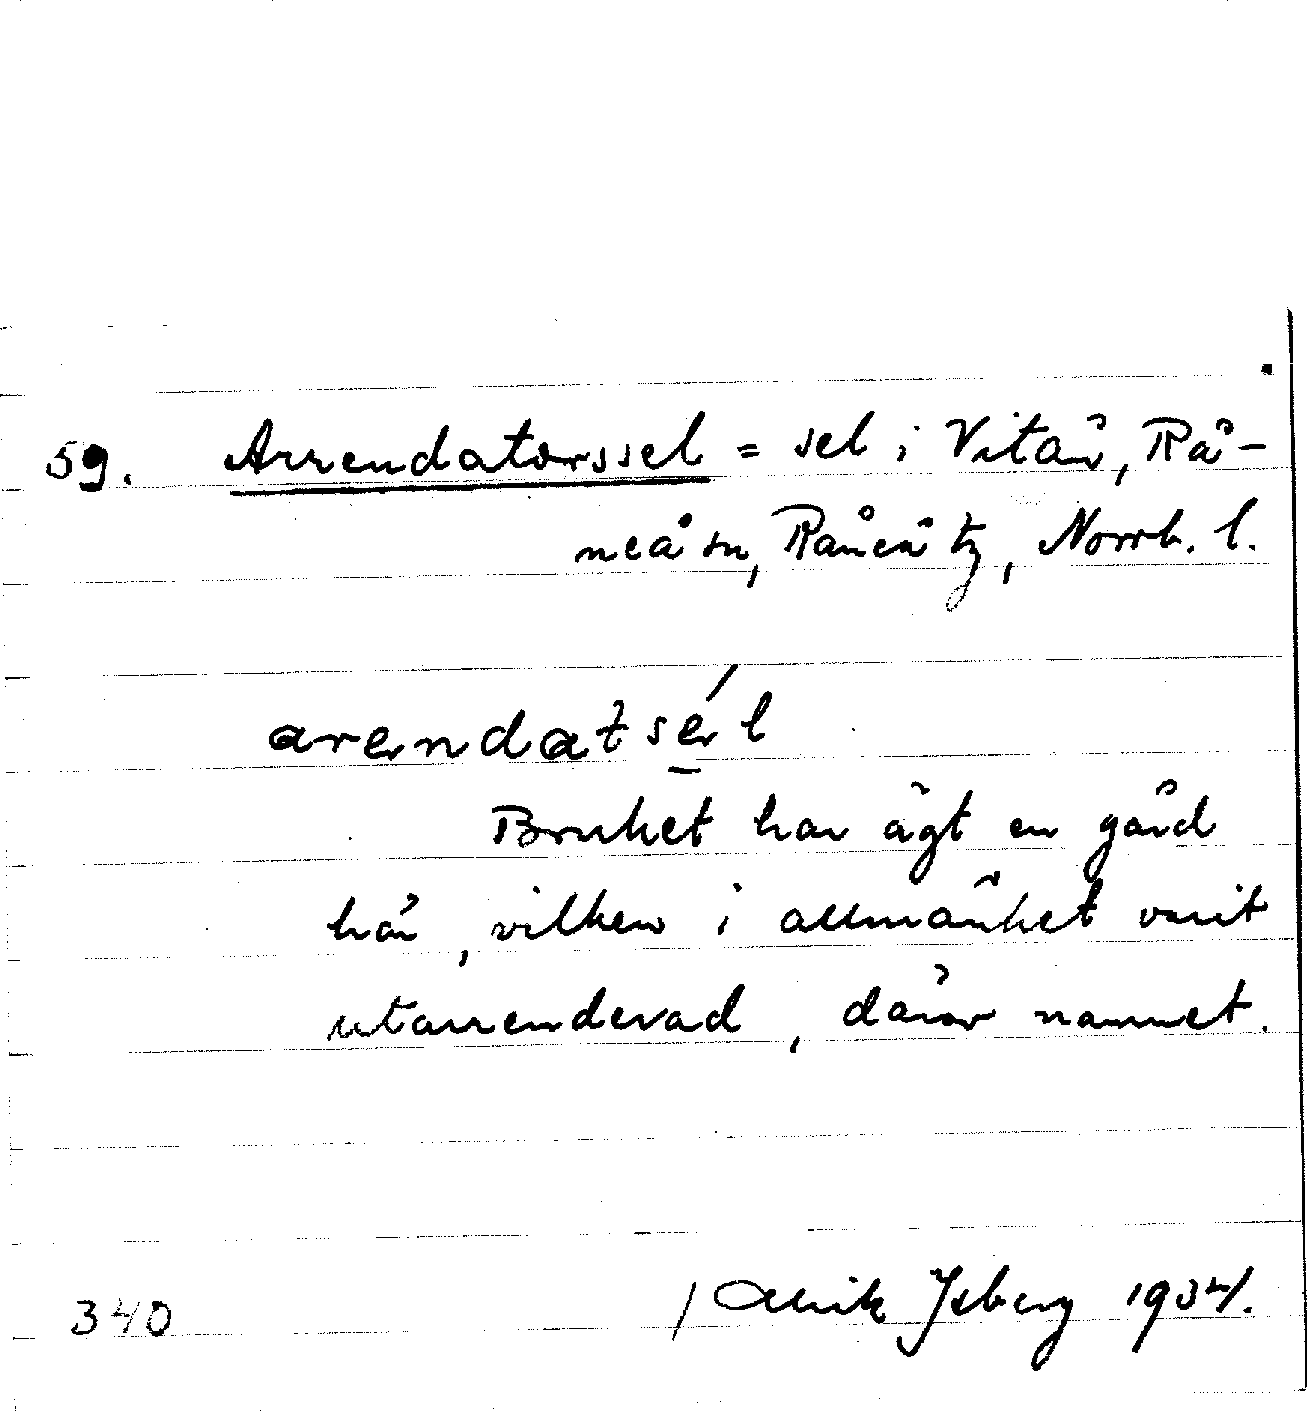 59. Arrendatorssel = sel i Vitån, Rå-
neå sn, Råneå tg, Norrb. l.
arendatsél
Bruket har ägt en gård
här, vilken i allmänhet varit
utarrenderad, därav namnet.
340 / Isberg 1934.